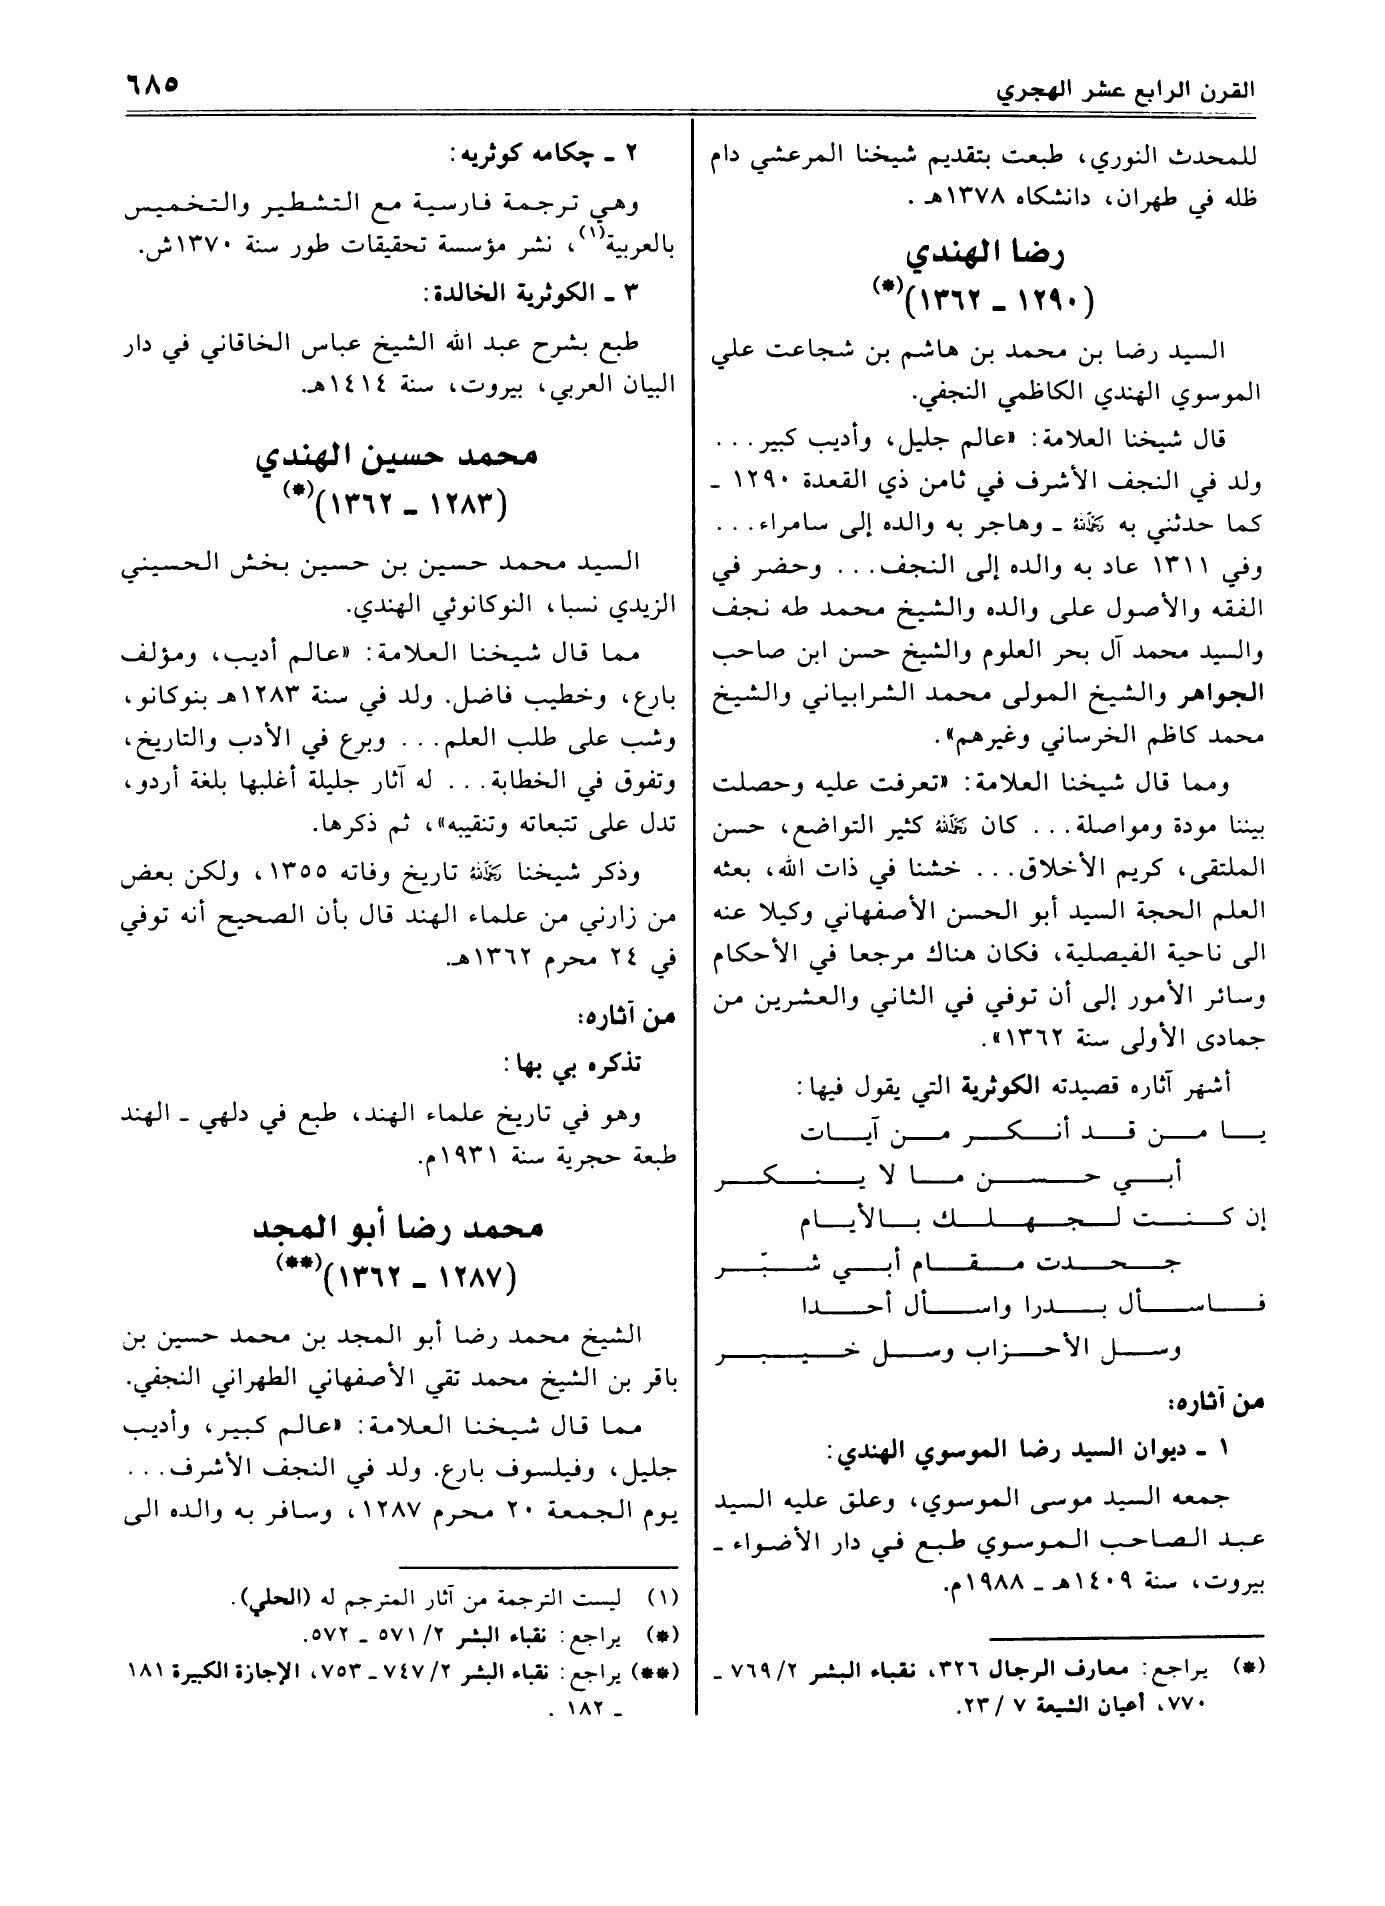 القرن الرابع عشر الهجري
٦٨٥
للمحدث النوري، طبعت بتقديم شيخنا المرعشي دام
ظله في طهران، دانشكاه ١٣٧٨هـ .
رضا الهندي
(١٢٩٠ ـ ١٣٦٢)(*)
السيد رضا بن محمد بن هاشم بن شجاعت علي
الموسوي الهندي الكاظمي النجفي.
قال شيخنا العلامة: «عالم جليل، وأديب كبير...
ولد في النجف الأشرف في ثامن ذي القعدة ١٢٩٠ ـ
كما حدثني به رَحِمَهُ ٱللَّٰهُ ـ وهاجر به والده إلى سامراء...
وفي ١٣١١ عاد به والده إلى النجف... وحضر في
الفقه والأصول على والده والشيخ محمد طه نجف
والسيد محمد آل بحر العلوم والشيخ حسن ابن صاحب
الجواهر والشيخ المولى محمد الشرابياني والشيخ
محمد كاظم الخرساني وغيرهم».
ومما قال شيخنا العلامة: «تعرفت عليه وحصلت
بيننا مودة ومواصلة... كان رَحِمَهُ ٱللَّٰهُ كثير التواضع، حسن
الملتقى، كريم الأخلاق... خشنا في ذات الله، بعثه
العلم الحجة السيد أبو الحسن الأصفهاني وكيلا عنه
الى ناحية الفيصلية، فكان هناك مرجعا في الأحكام
وسائر الأمور إلى أن توفي في الثاني والعشرين من
جمادى الأولى سنة ١٣٦٢».
أشهر آثاره قصيدته الكوثرية التي يقول فيها:
يا من قد أنكر من آيات
أبي حسن ما لا ينكر
إن كنت لجهلك بالأيام
جحدت مقام أبي شبّر
فاسأل بدرا واسأل أحدا
وسل الأحزاب وسل خيبر
من آثاره:
١ ـ ديوان السيد رضا الموسوي الهندي:
جمعه السيد موسى الموسوي، وعلق عليه السيد
عبد الصاحب الموسوي طبع في دار الأضواء ـ
بيروت، سنة ١٤٠٩هـ ـ ١٩٨٨م.
(*) يراجع: معارف الرجال ٣٢٦، نقباء البشر ٢/ ٧٦٩ ـ
٧٧٠، أعيان الشيعة ٧ / ٢٣.
٢ ـ چكامه كوثريه:
وهي ترجمة فارسية مع التشطير والتخميس
بالعربية(١)، نشر مؤسسة تحقيقات طور سنة ١٣٧٠ش.
٣ ـ الكوثرية الخالدة:
طبع بشرح عبد الله الشيخ عباس الخاقاني في دار
البيان العربي، بيروت، سنة ١٤١٤هـ.
محمد حسين الهندي
(١٢٨٣ ـ ١٣٦٢)(*)
السيد محمد حسين بن حسين بخش الحسيني
الزيدي نسبا، النوكانوئي الهندي.
مما قال شيخنا العلامة: «عالم أديب، ومؤلف
بارع، وخطيب فاضل. ولد في سنة ١٢٨٣هـ بنوكانو،
وشب على طلب العلم... وبرع في الأدب والتاريخ،
وتفوق في الخطابة... له آثار جليلة أغلبها بلغة أردو،
تدل على تتبعاته وتنقيبه»، ثم ذكرها.
وذكر شيخنا رَحِمَهُ ٱللَّٰهُ تاريخ وفاته ١٣٥٥، ولكن بعض
من زارني من علماء الهند قال بأن الصحيح أنه توفي
في ٢٤ محرم ١٣٦٢هـ.
من آثاره:
تذكره بي بها:
وهو في تاريخ علماء الهند، طبع في دلهي ـ الهند
طبعة حجرية سنة ١٩٣١م.
محمد رضا أبو المجد
(١٢٨٧ ـ ١٣٦٢)(**)
الشيخ محمد رضا أبو المجد بن محمد حسين بن
باقر بن الشيخ محمد تقي الأصفهاني الطهراني النجفي.
مما قال شيخنا العلامة: «عالم كبير، وأديب
جليل، وفيلسوف بارع. ولد في النجف الأشرف...
يوم الجمعة ٢٠ محرم ١٢٨٧، وسافر به والده الى
(١) ليست الترجمة من آثار المترجم له (الحلي).
(*) يراجع: نقباء البشر ٢/ ٥٧١ ـ ٥٧٢.
(**) يراجع: نقباء البشر ٢/ ٧٤٧ ـ ٧٥٣، الإجازة الكبيرة ١٨١
ـ ١٨٢ .